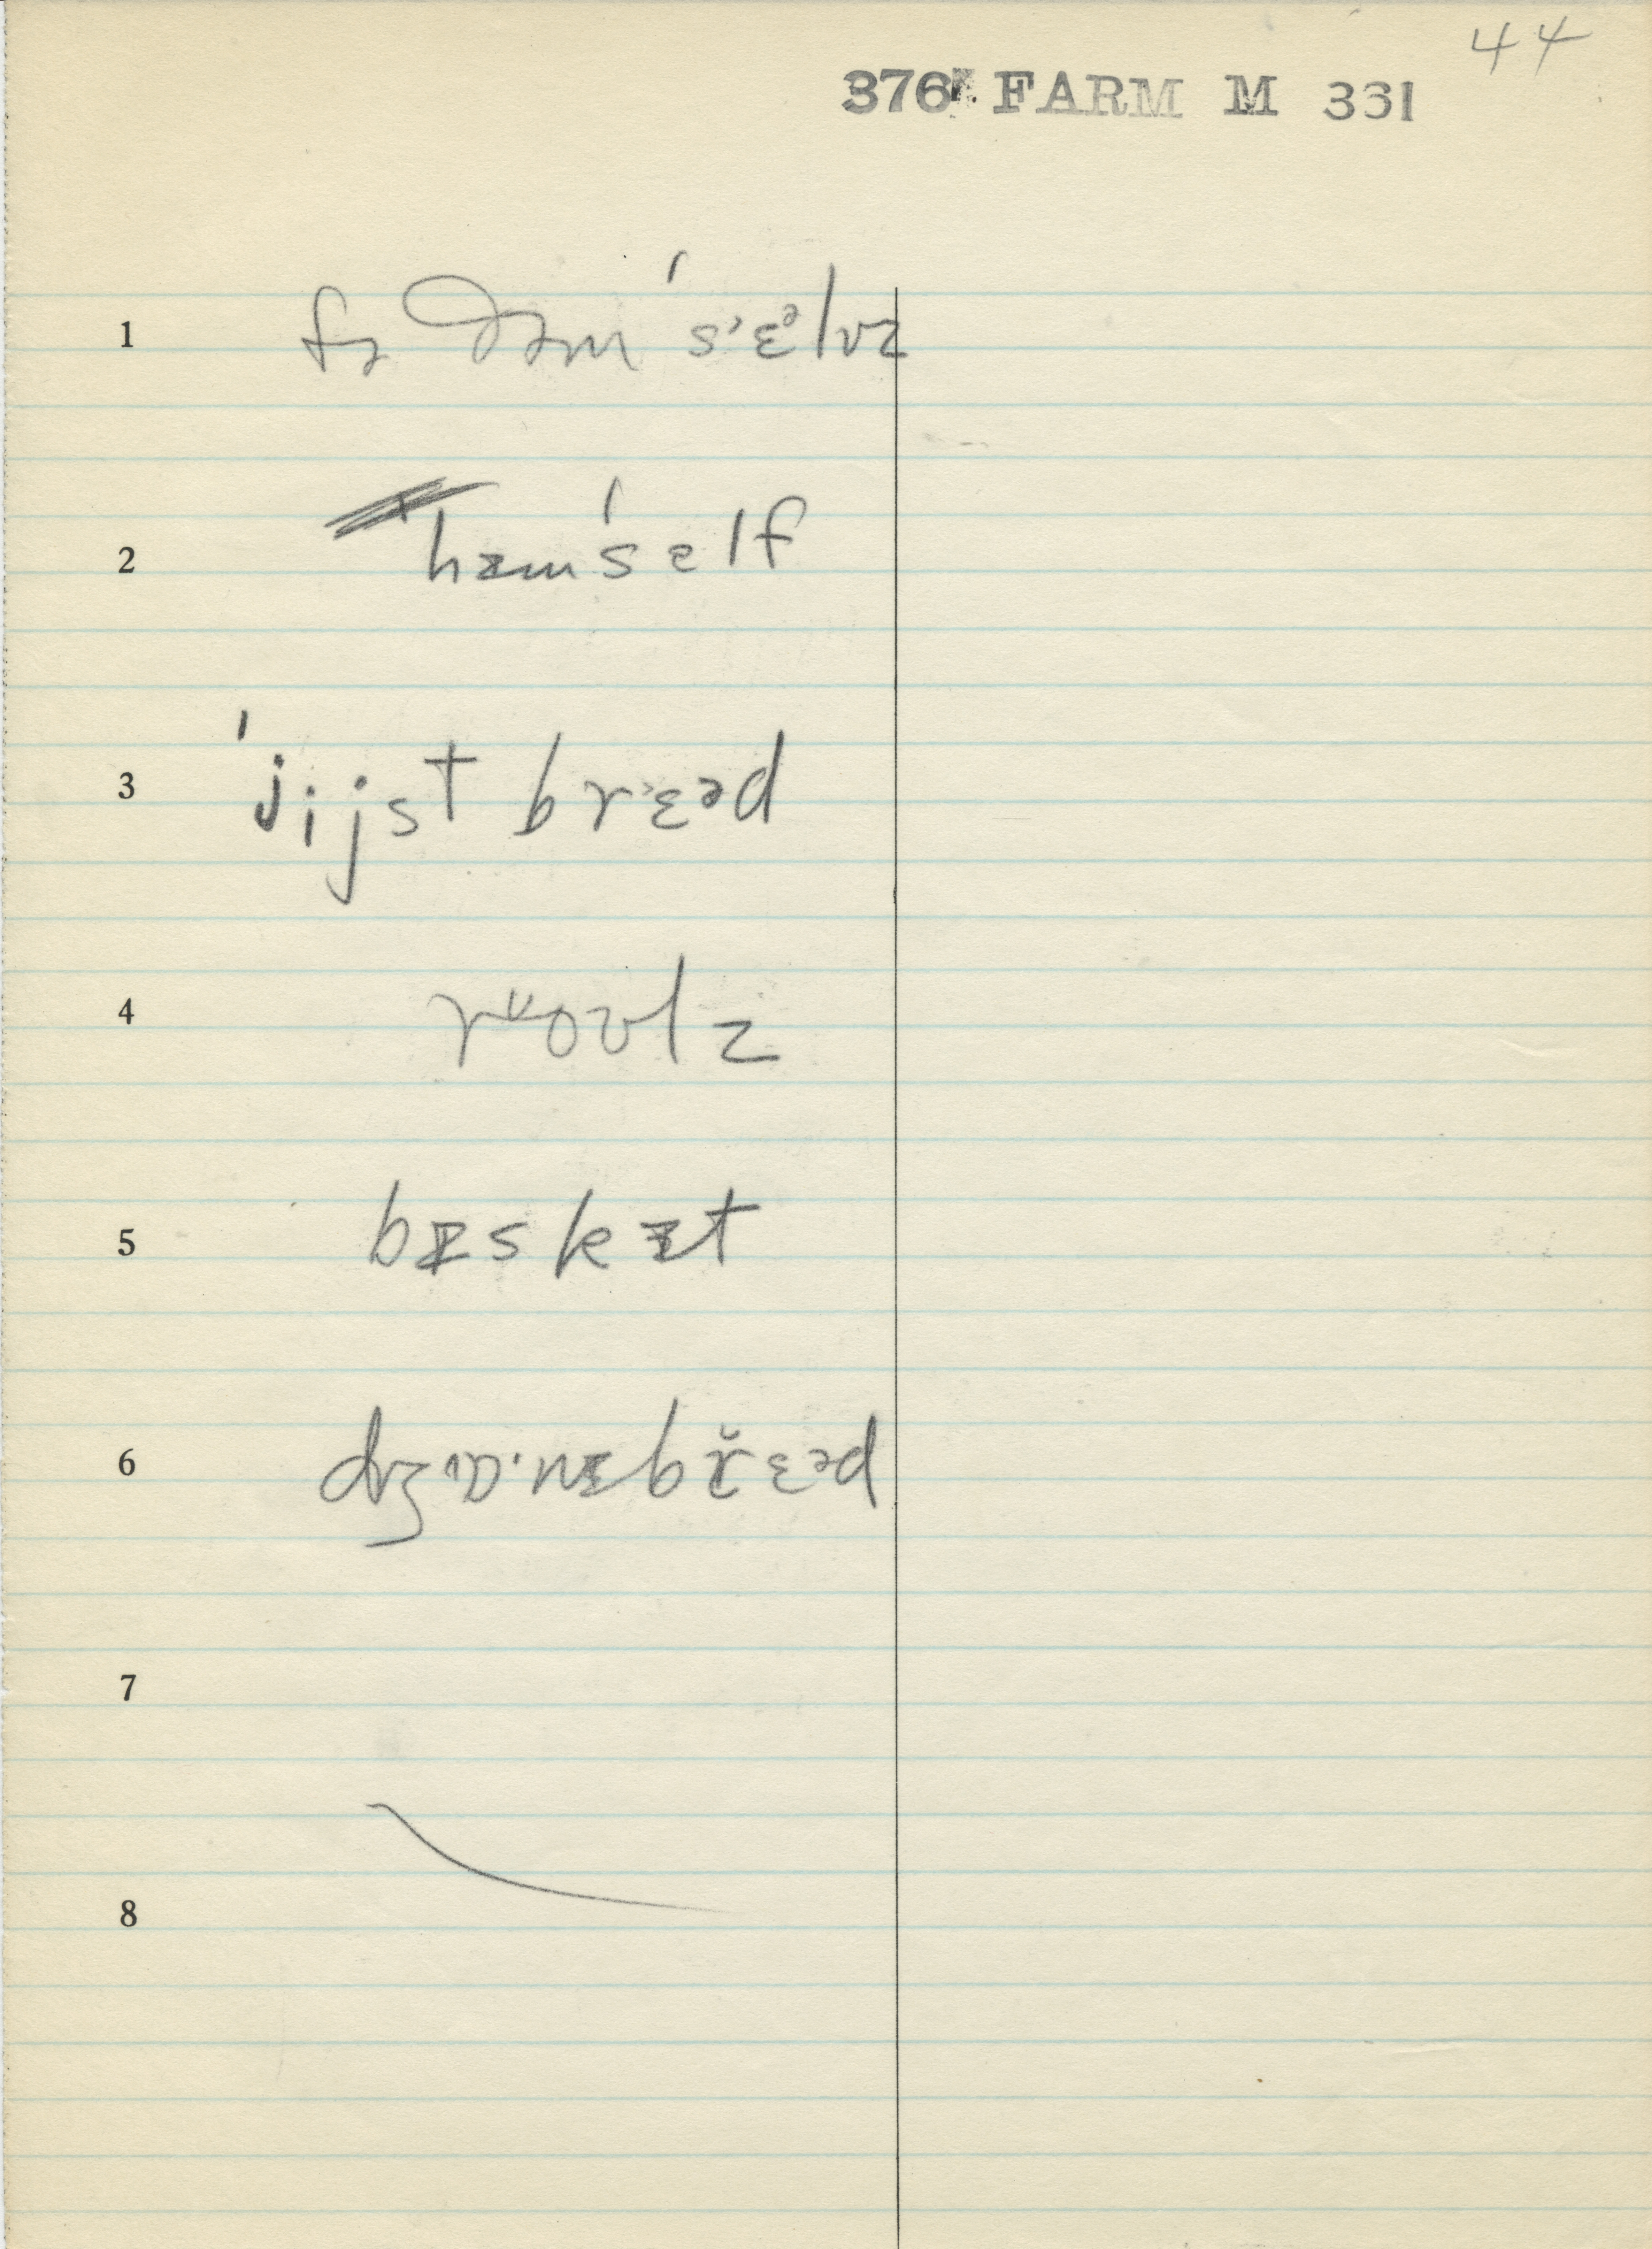 44
376 FARM M 331
1 fɚ ðəm ˈsˑɛᵊlvz
2 hɪmˈself
3 ˈjijst brˑɛəd
4 rᶷoʊlz
5 bɪskɪt
6 br̆ɛəd
7
8